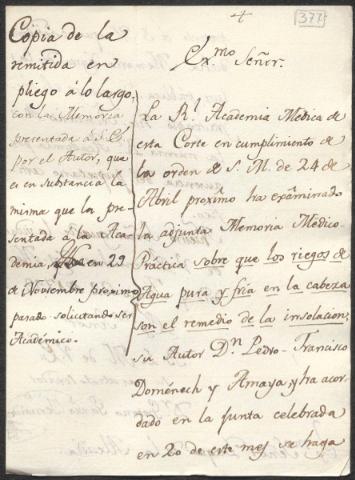 377
Copia de la
remitida en
pliego à lo largo,
con la Memoria
presentada à S. E.
por el Autor, que
es en substancia la
misma que la pre-
sentada à la Aca-
demia en 29
de Noviembre proximo
pasado solicitando ser
Académico.
Exmo Señor.
La Rl. Academia Medica de
esta Corte en cumplimiento de
la orden de S. M. de 24 de
Abril proximo ha exâminado
la adjunta Memoria Medico
Práctica sobre que los riegos de
Agua pura y fria en la cabeza
son el remedio de la insolacion;
su Autor Dn. Pedro Francisco
Doménech y Amaya, y ha acor-
dado en la Junta celebrada
en 20 de este mes se haga